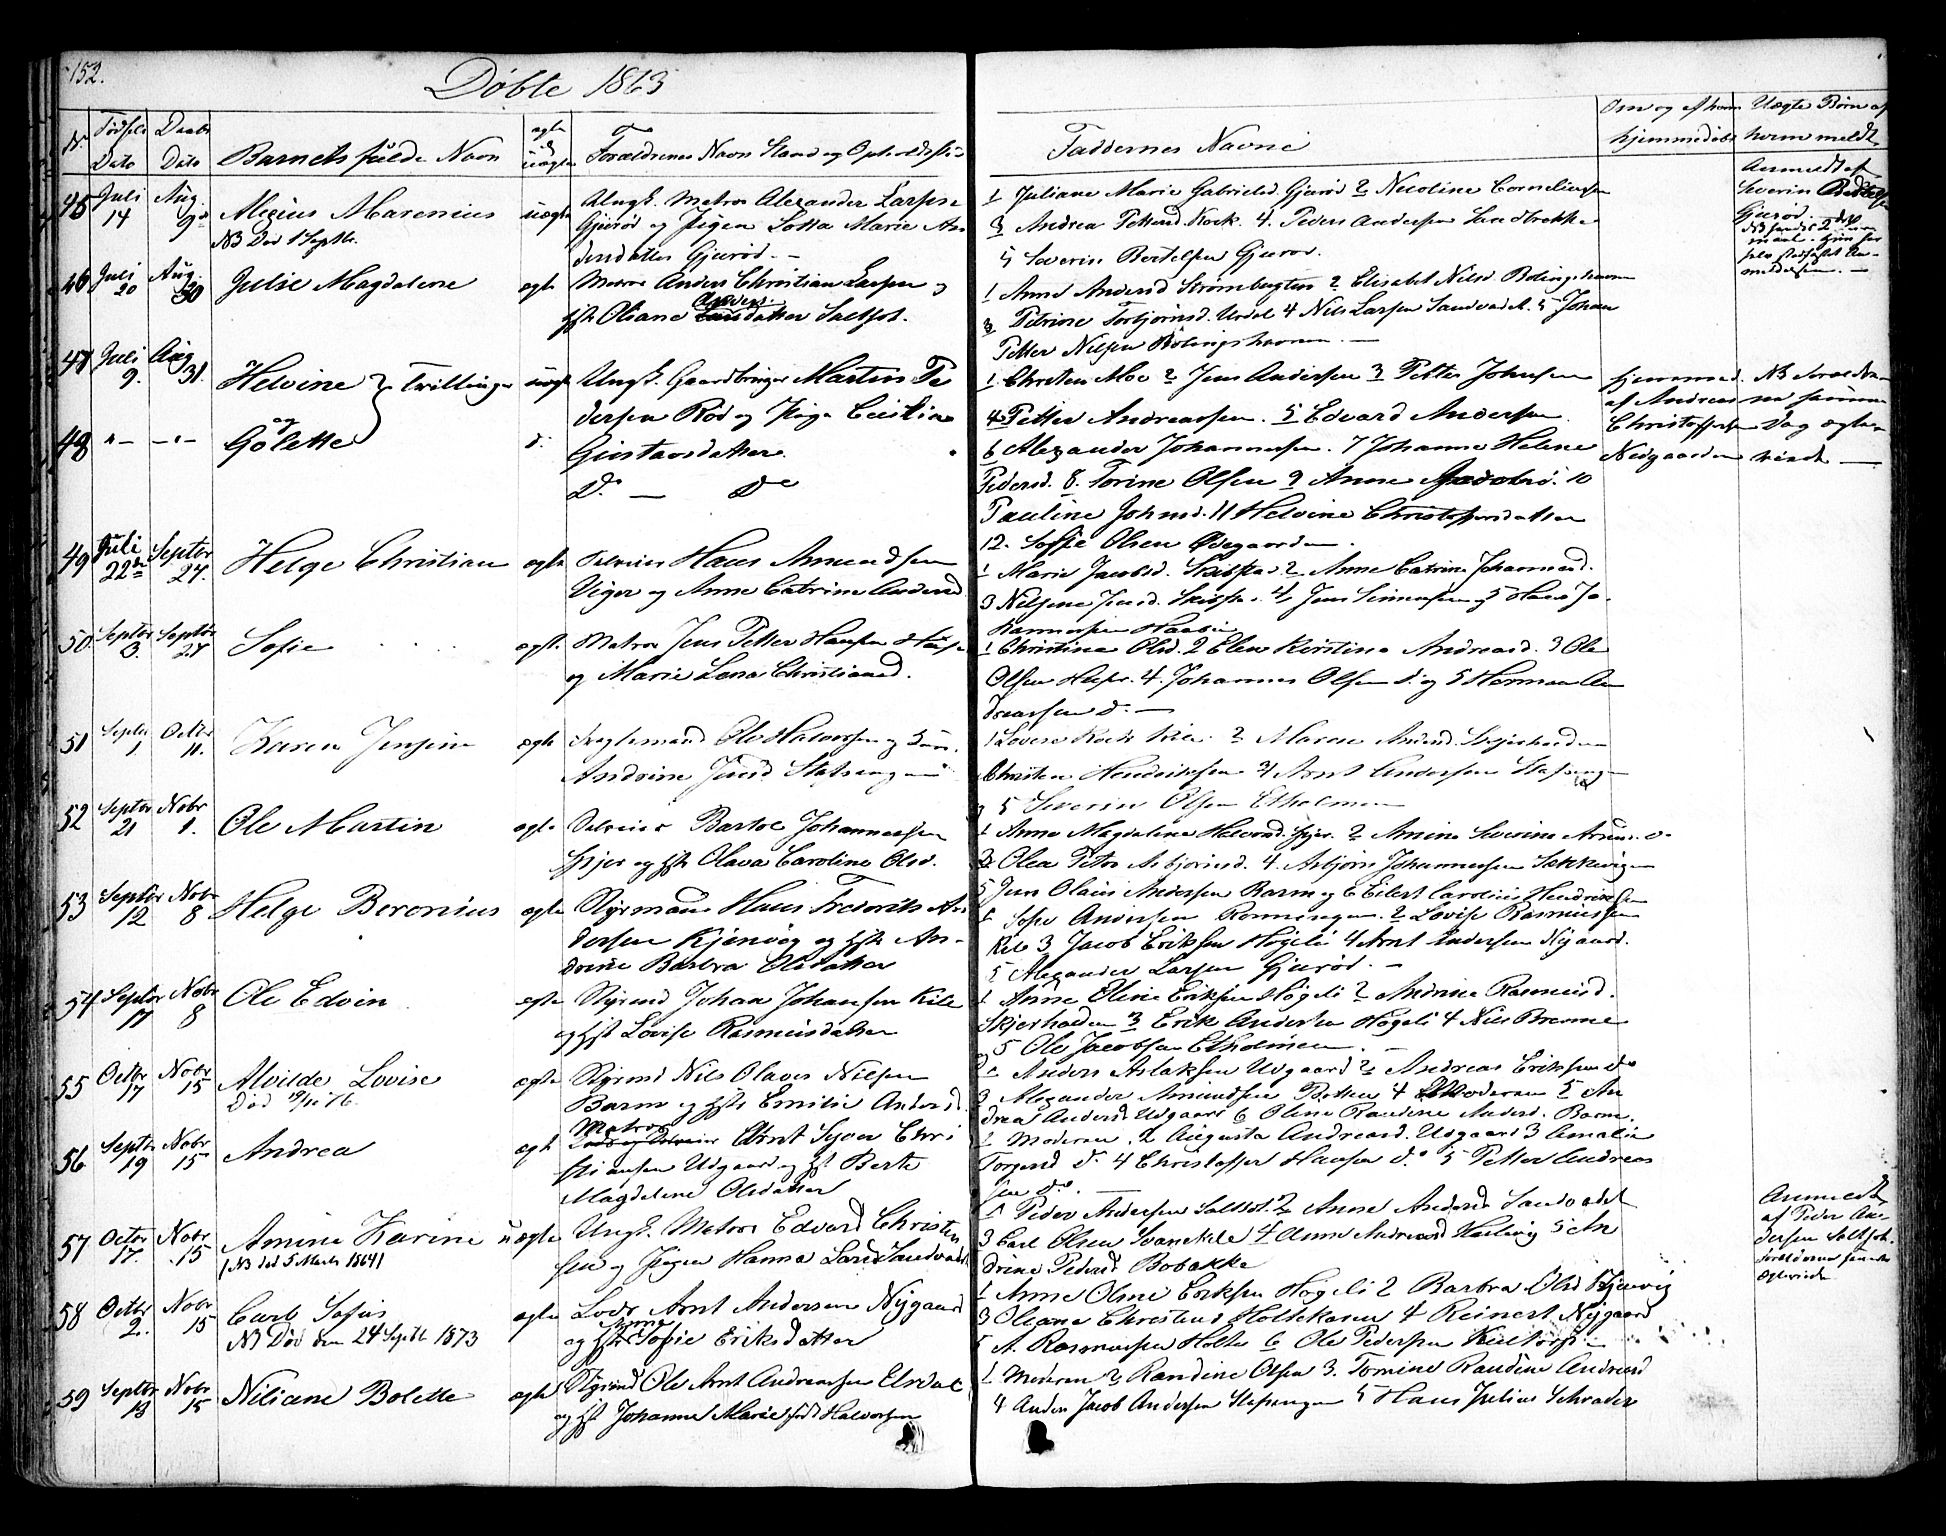 152.
Døbte 1863
Nr Fødsels Dato Daabs Dato Barnets fulde Navn ægte el uægte Forældrenes Navn Stand og Opholdssted
Faddernes Navne
Om og af hvem hjemmedøbt
Uægte Børn af hvem meldt
45 Juli 14 Aug. 9de Alexius Marenius uægte Ungk. Matros Alexander Larsen
NB Død 1 Septbr.
Gjærød og Pigen Lotta Marie An
dersdatter Gjærød. —
1 Juliane Marie Gabrielsd. Gjærød 2 Nicoline Corneliusen
3 Andrea Pettersd. Kock. 4. Peder Andersen Sandbrekke
5 Severin Bertelsen Gjærød.
Anmeldt af
Severin Bertelsen
Gjærød.
46 Juli 20 Aug. 30 Julie Magdalene ægte Matros Anders Christian Larsen og
Hst. Oliane Andersdatter Saltbot.
1 Anne Andersd Strømbugten 2 Elisabet Nilsd Bølingshavn
3 Petrine Torbjørnsd. Urdal 4 Nils Larsen Sandvadet. 5 Johan
Petter Nilsen Bølingshavnen. —
47 Juli 9. Aug 31. Helvine } Tvillinger uægte Ungk. Gaardbruger Martin Pe
dersen Rød og Pige Cecilia
og
48 " — — " — Golette do Gustavsdatter.
Do — Do
1 Christen Moe 2 Jens Andersen 3 Petter Johnsen
4 Petter Andreassen. 5 Edvard Andersen
6 Alexander Johannesen. 7 Johanne Helene
Pedersd. 8. Torine Olsen 9 Anne Jacobsd. 10
Pauline Johnsd. 11 Helvine Christophersdatter
12. Sofie Olsen Ødegaarden.
hjemmed.
af Andreas
Christoffersen
Nedgaarden
NB Forældre
ne samme
Dag ægte
viede —
49 Juli 22de Septbr 27. Helge Christian ægte Selveier Hans Amundsen
Viger og Anne Catrine Andersd
1 Marie Jacobsd. Skibstad 2 Anne Catrine Johannesd.
3 Nilsine Jensd. Skibsta. 4 Jens Simensen og 5 Hans Jo
hannessen Haabu
50. Septbr 3. Septbr 27 Sofie ægte. Matros Jens Petter Hansen
og Marie Lena Christiansd.
1 Christine Olsd. 2 Elen Kirstine Andreasd. 3 Ole
Olsen 4. Johannes Olsen d. og 5 Herman An
dreassen d. —
51 Septbr 1 Octbr 11. Karen Jensine ægte Ole Halvorsen og
Andrine Jensd Stafseng
1 Lovise Kock 2 Maren Amundsd. Skjærholden
Christen Hendriksen 4 Arnt Andersen Stafseng
5 Severin Olsen Etholmen
52 Septbr 21 Nobr 1. Ole Martin ægte Selveier Bartol Johannessen
Spjer og Hst. Olava Caroline Olsd.
1 Anne Magdalene Halvorsd. Spjer. 2 Amine Severine Arnes. d.
3 Olea Petra Asbjørnsd. 4 Asbjørn Johannessen Sækkevigen
5 Jens Olaus Andersen Barm og 6 Eilert Carolius Hendriksen
53 Septbr 12 Nobr 8 Helge Beronius ægte Styrmand Hans Frederik An
dersen Kjærvig og Hst. An-
drine Barbra Olsdatter
1 Sofie Andersen Rønningen. 2 Lovise Rasmussen
Kile 3 Jacob Eriksen Høgeli 4 Arnt Andersen Nygaard.
5 Alexander Larsen Gjærød. —
54 Septbr 17 Nobr 8 Ole Edvin ægte Styrmd Johan Johansen Kile
og Hst Lovise Rasmusdatter
1 Anne Oline Eriksen Høgeli 2 Andrine Rasmusd.
Skjærholden 3 Erik Andersen Høgeli 4 Nils Bremne
og 5 Ole Jacobsen Etholmen. —
55 Octbr 17 Nobr 15 Alvilde Lovise ægte Styrmd Nils Olaves Nilsen
Død 19/11 76.
Barm og Hst. Emilie Andersd.
1 Anders Aslaksen Udgaard 2 Andreas Eriksen do
3 Alexander Amundsen Bakken 4 Moderen 5 An
drea Andersd Udgaard 6 Oline Randine Andersd. Barm.
56 Septbr 19 Nobr 15 Andrea ægte Matros Arnt Syver Chri
stiansen Udgaard og Hst Berte
Magdelene Olsdatter
1 Moderen. 2 Augusta Andreasd. Udgaard 3 Amalie
Torgersd do 4 Christoffer Hansen do 5 Petter Andreas
sen do. —
57 Octbr 17. Nobr 15 Amine Karine uægte Ungk. Matros Edvard Christen
(NB død 5 Marts 1864)
sen og Pigen Hanna Larsd Sandvadet
1 Peder Andersen Saltbot. 2 Anne Andersd Sandvadet
3 Carl Olsen Svanekile 4 Anne Andreasd Hasselvig 5 An
drine Pedersd Bobakke
Anmeldt
af Peder An-
dersen Saltbot.
Forældrene senere
ægteviede
58 Octbr 2. Nobr 15 Carl Sofus ægte Lods Arnt Andersen Nygaard
NB Død den 24 Septbr 1873
og Hst Anne Sofie Eriksdatter
1 Anne Oline Eriksen Høgeli 2 Barbra Olsd Kjærvig
3 Oleane Christensd Holtekasen 4 Reinert Nygaard
5 A. Rasmussen Holte 6 Ole Pedersen
59 Septbr 13 Nobr 15 Niliane Bolette ægte Styrmd Ole Arnt Andreassen Elsdal
og Hst Johanne Marie født Halvorsen
1 Moderen 2 Randine Olsen 3. Tomine Randine Andreasd
4 Anders Jacob Andersen Stafsengen 5 Hans Julius Schrader